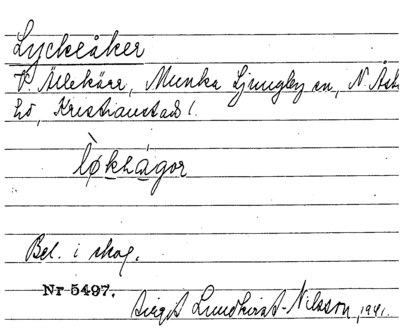 Lyckeåker
V. Ällekärr, Munka Ljungby sn, N. Åsbo
hd, Kristianstads l.
Bel. i skog.
Nr 5497.
Birgit Lundkvist-Nilsson, 1941.